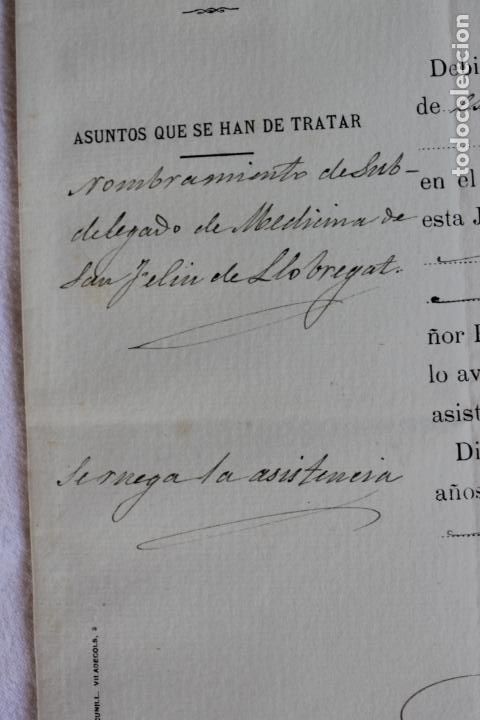 ASUNTOS QUE SE HAN DE TRATAR
Nombramiento de Sub-
delegado de Medicina de
San Feliu de Llobregat.
Se ruega la asistencia
Debi
de
en el
esta J
ñor P
lo av
asist
Di
años
CUNILL. VILADECOLS, 2
todocoleccion